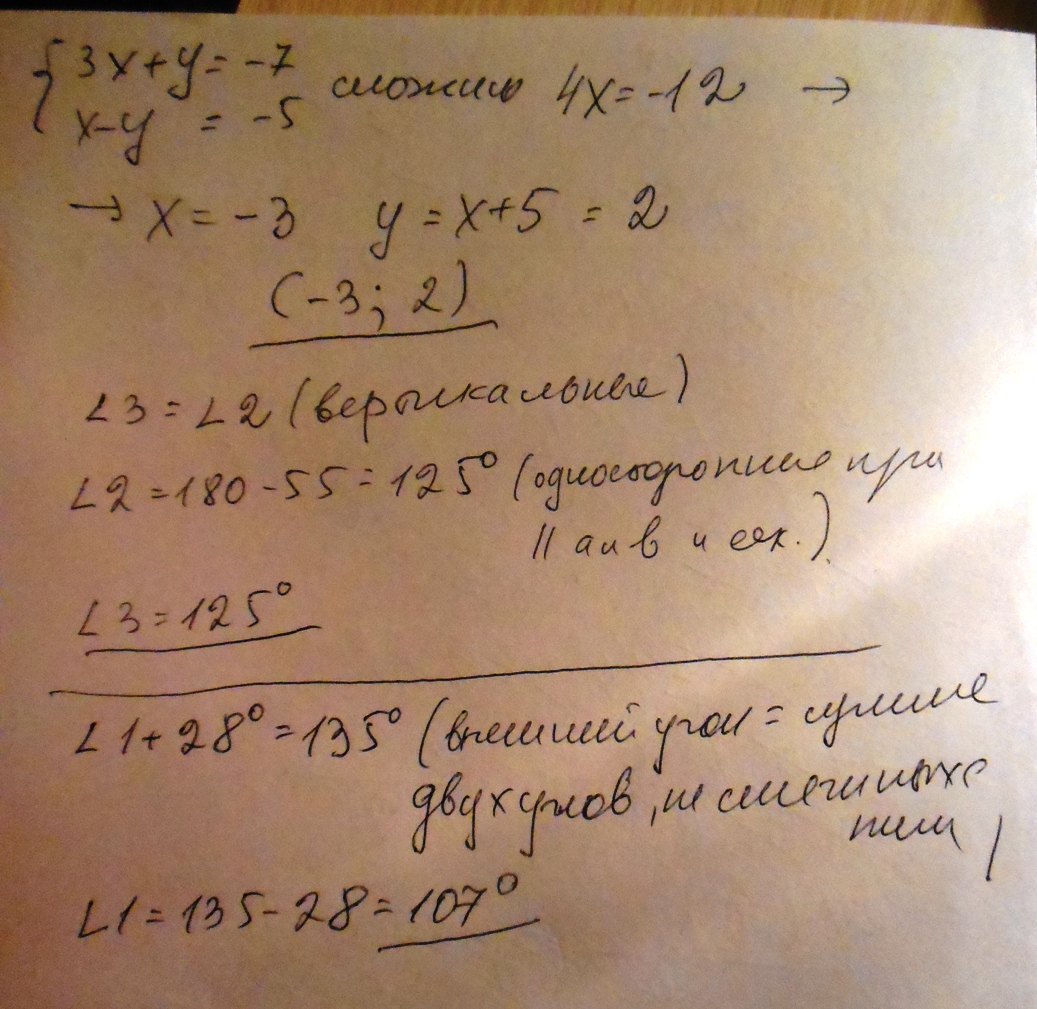 {3x+y=-7 сложим 4x=-12 →
x-y = -5
→ x=-3 y=x+5=2
(-3; 2)
∠3=∠2 (вертикальные)
∠2=180-55=125° (односторонние при
|| a и b и сек.)
∠3=125°
∠1+28°=135° (внешний угол = сумме
двух углов, не смежных с
ним)
∠1=135-28=107°